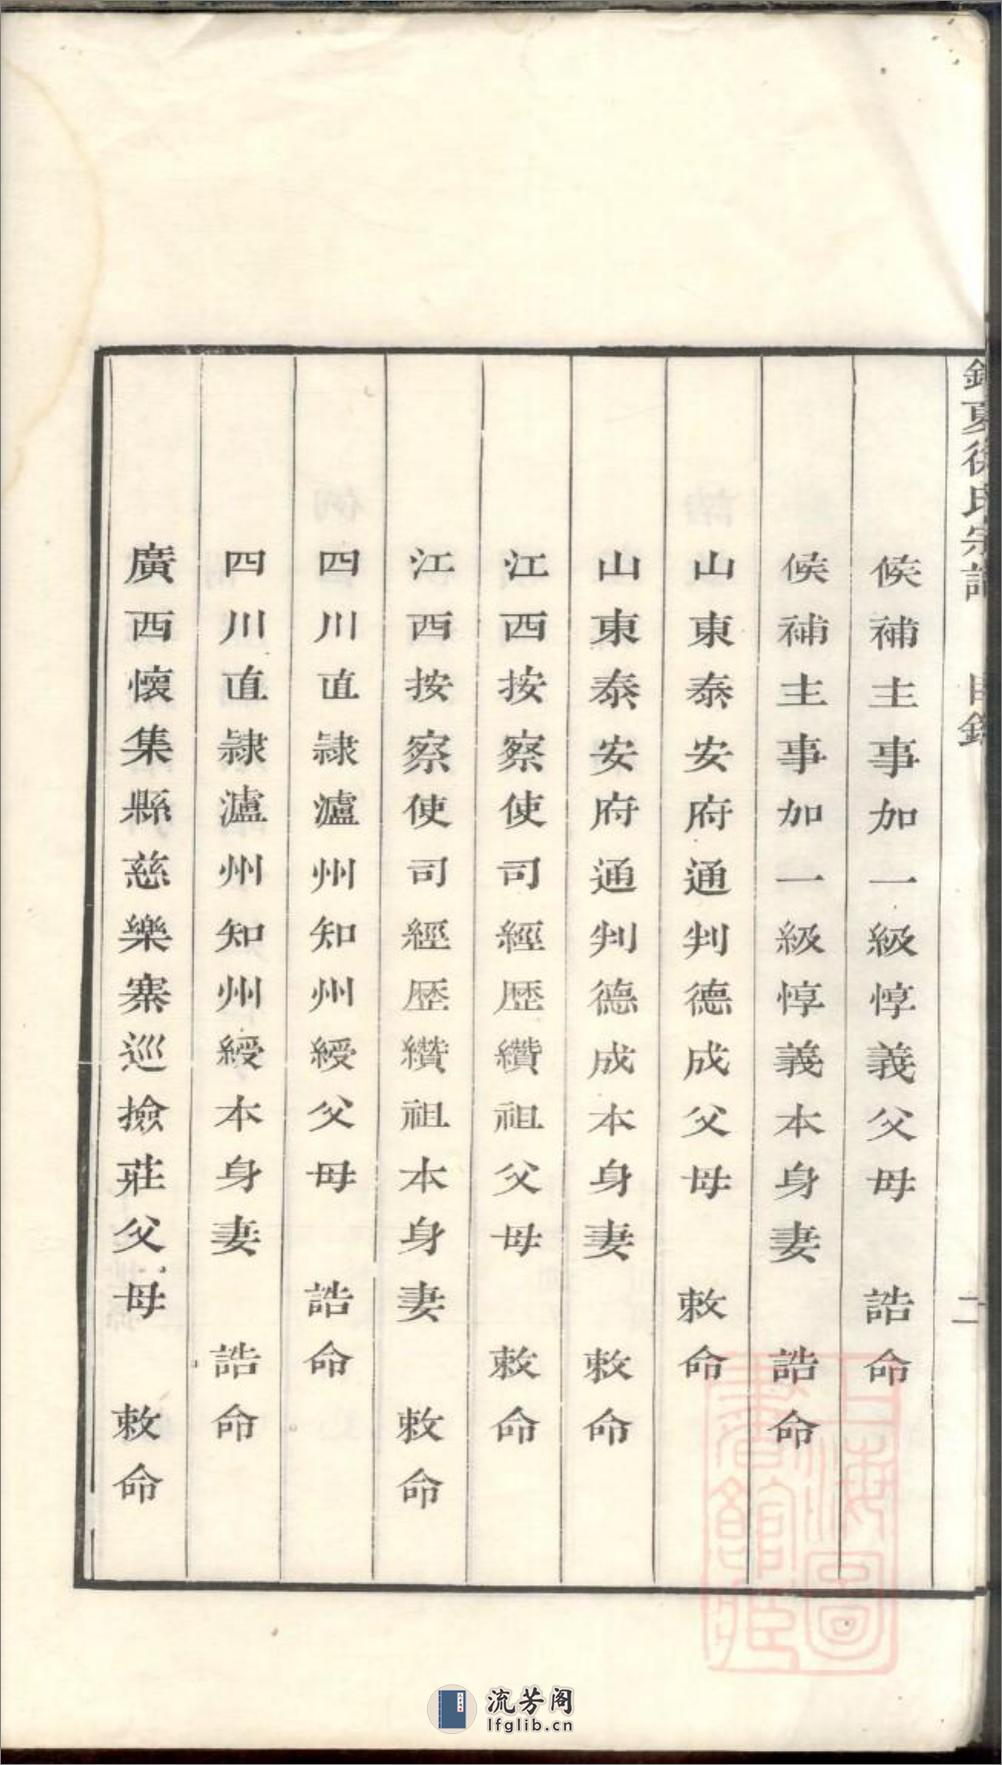 夏徐氏宗譜 目錄 二
候補主事加一級惇義父母 誥命
候補主事加一級惇義本身妻 誥命
山東泰安府通判德成父母 敕命
山東泰安府通判德成本身妻 敕命
江西按察使司經歷纘祖父母 敕命
江西按察使司經歷纘祖本身妻 敕命
四川直隸瀘州知州綬父母 誥命
四川直隸瀘州知州綬本身妻 誥命
廣西懷集縣慈樂寨巡撿莊父母 敕命
上海圖書館藏
流芳阁
lfglib.cn